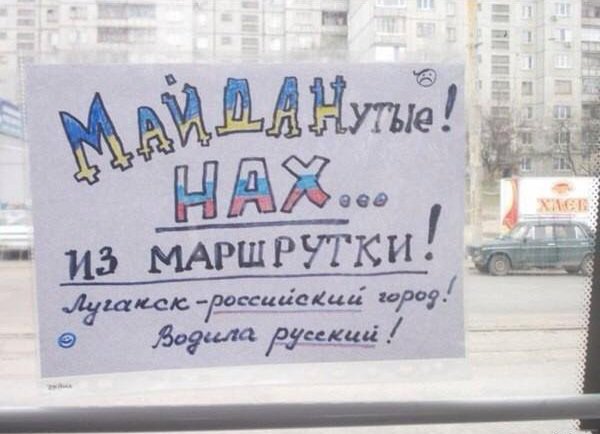 МАЙДАНутые!
НАХ...
ИЗ МАРШРУТКИ!
Луганск - российский город!
Водила русский!
ХЛЕБ